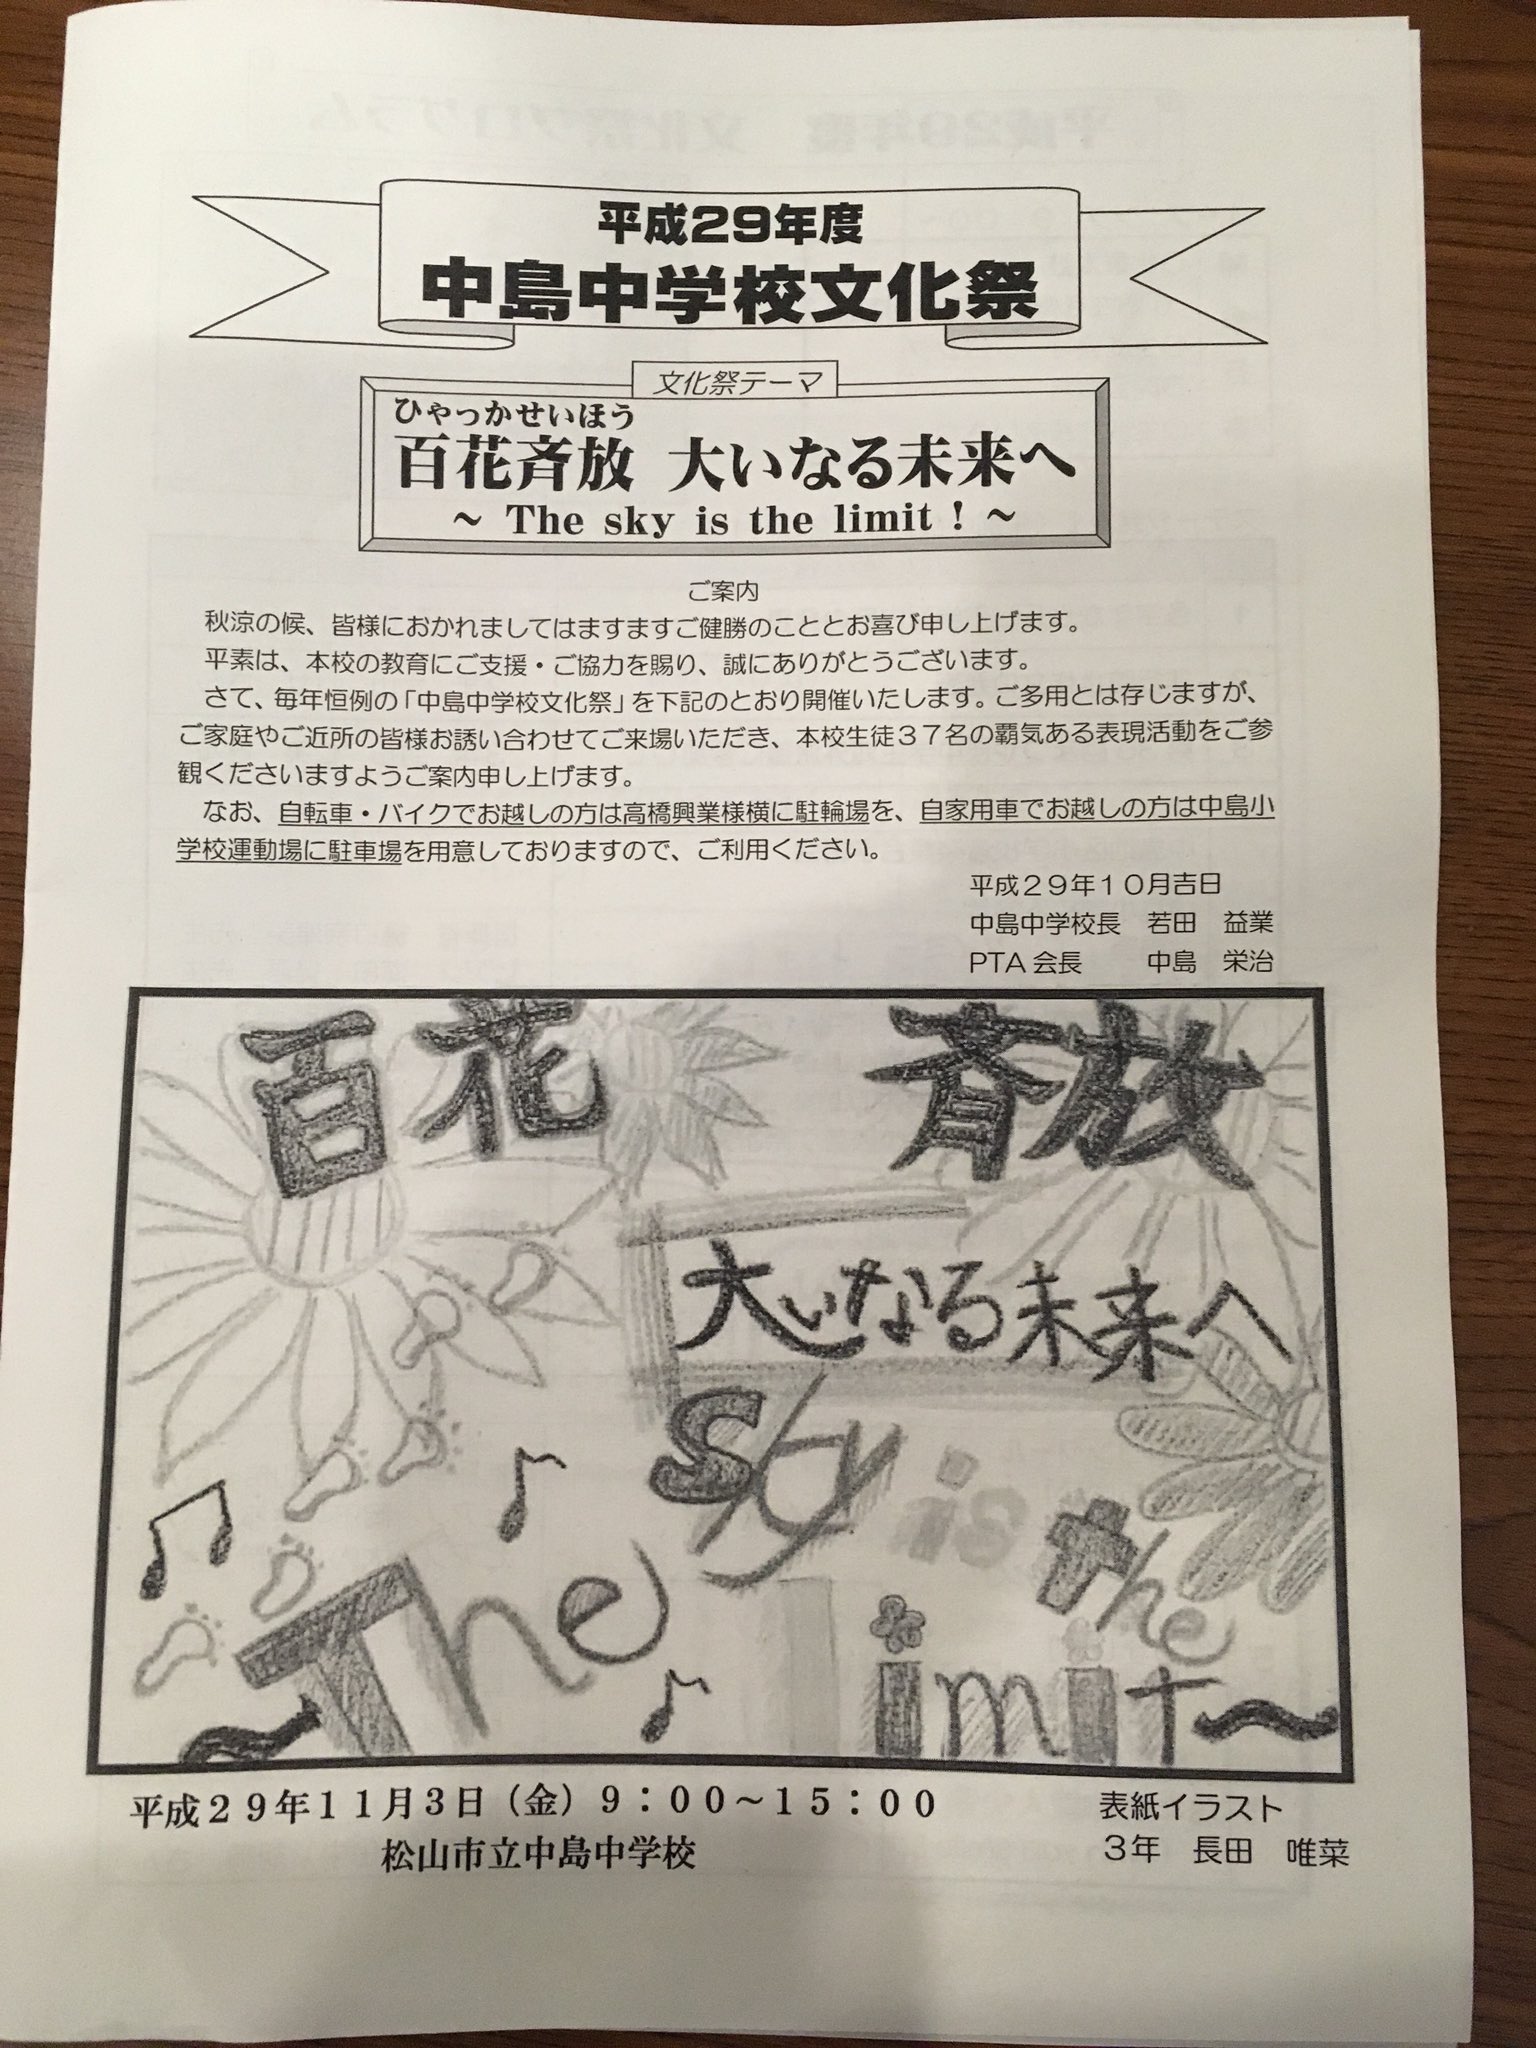 平成29年度
中島中学校文化祭
文化祭テーマ
ひゃっかせいほう
百花斉放 大いなる未来へ
～ The sky is the limit ! ～
ご案内
秋涼の候、皆様におかれましてはますますご健勝のこととお喜び申し上げます。
平素は、本校の教育にご支援・ご協力を賜り、誠にありがとうございます。
さて、毎年恒例の「中島中学校文化祭」を下記のとおり開催いたします。ご多用とは存じますが、
ご家庭やご近所の皆様お誘い合わせてご来場いただき、本校生徒３７名の覇気ある表現活動をご参
観くださいますようご案内申し上げます。
なお、自転車・バイクでお越しの方は高橋興業様横に駐輪場を、自家用車でお越しの方は中島小
学校運動場に駐車場を用意しておりますので、ご利用ください。
平成２９年１０月吉日
中島中学校長　若田　益業
PTA 会長　中島　栄治
百花 斉放
大いなる未来へ
～The sky is the limit～
平成２９年１１月３日（金）９：００～１５：００
松山市立中島中学校
表紙イラスト
３年　長田　唯菜